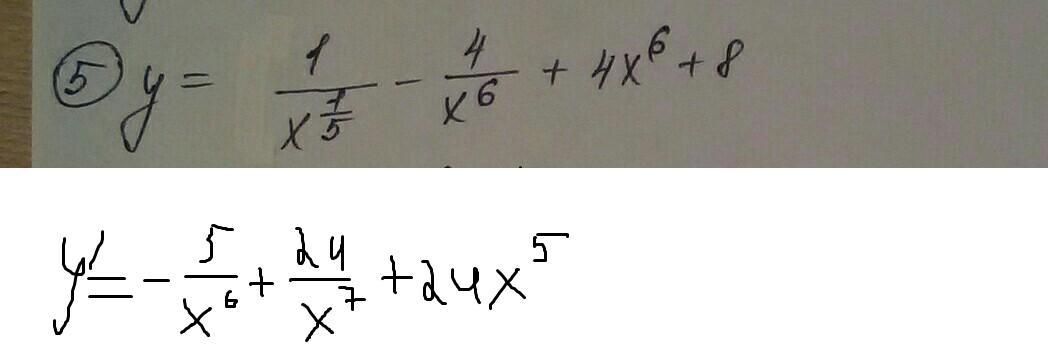 ⑤ y = 1/x^(1/5) - 4/x^6 + 4x^6 + 8
y' = - 5/x^6 + 24/x^7 + 24x^5